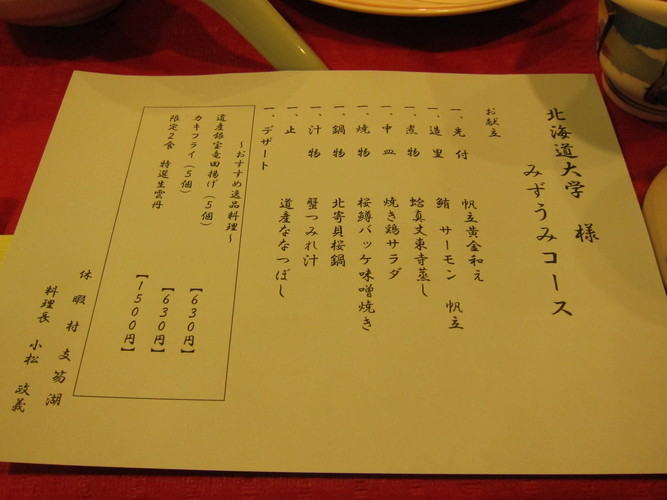 北海道大学 様
みずうみコース
お献立
一、先 付 帆立黄金和え
一、造 里 鮪 サーモン 帆立
一、煮 物 蛤真丈東寺蒸し
一、中 皿 焼き鶏サラダ
一、焼 物 桜鱒バッケ味噌焼き
一、鍋 物 北寄貝桜鍋
一、汁 物 蟹つみれ汁
一、止 道産ななつぼし
一、デザート
～おすすめ逸品料理～
道産銀宝竜田揚げ(5個) 【630円】
カキフライ(5個) 【630円】
限定2食 特選生雲丹 【1500円】
休暇村支笏湖
料理長 小松 政義